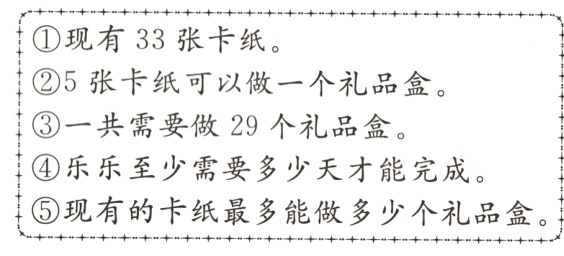 ①现有 33 张卡纸。
②5 张卡纸可以做一个礼品盒。
③一共需要做 29 个礼品盒。
④乐乐至少需要多少天才能完成。
⑤现有的卡纸最多能做多少个礼品盒。